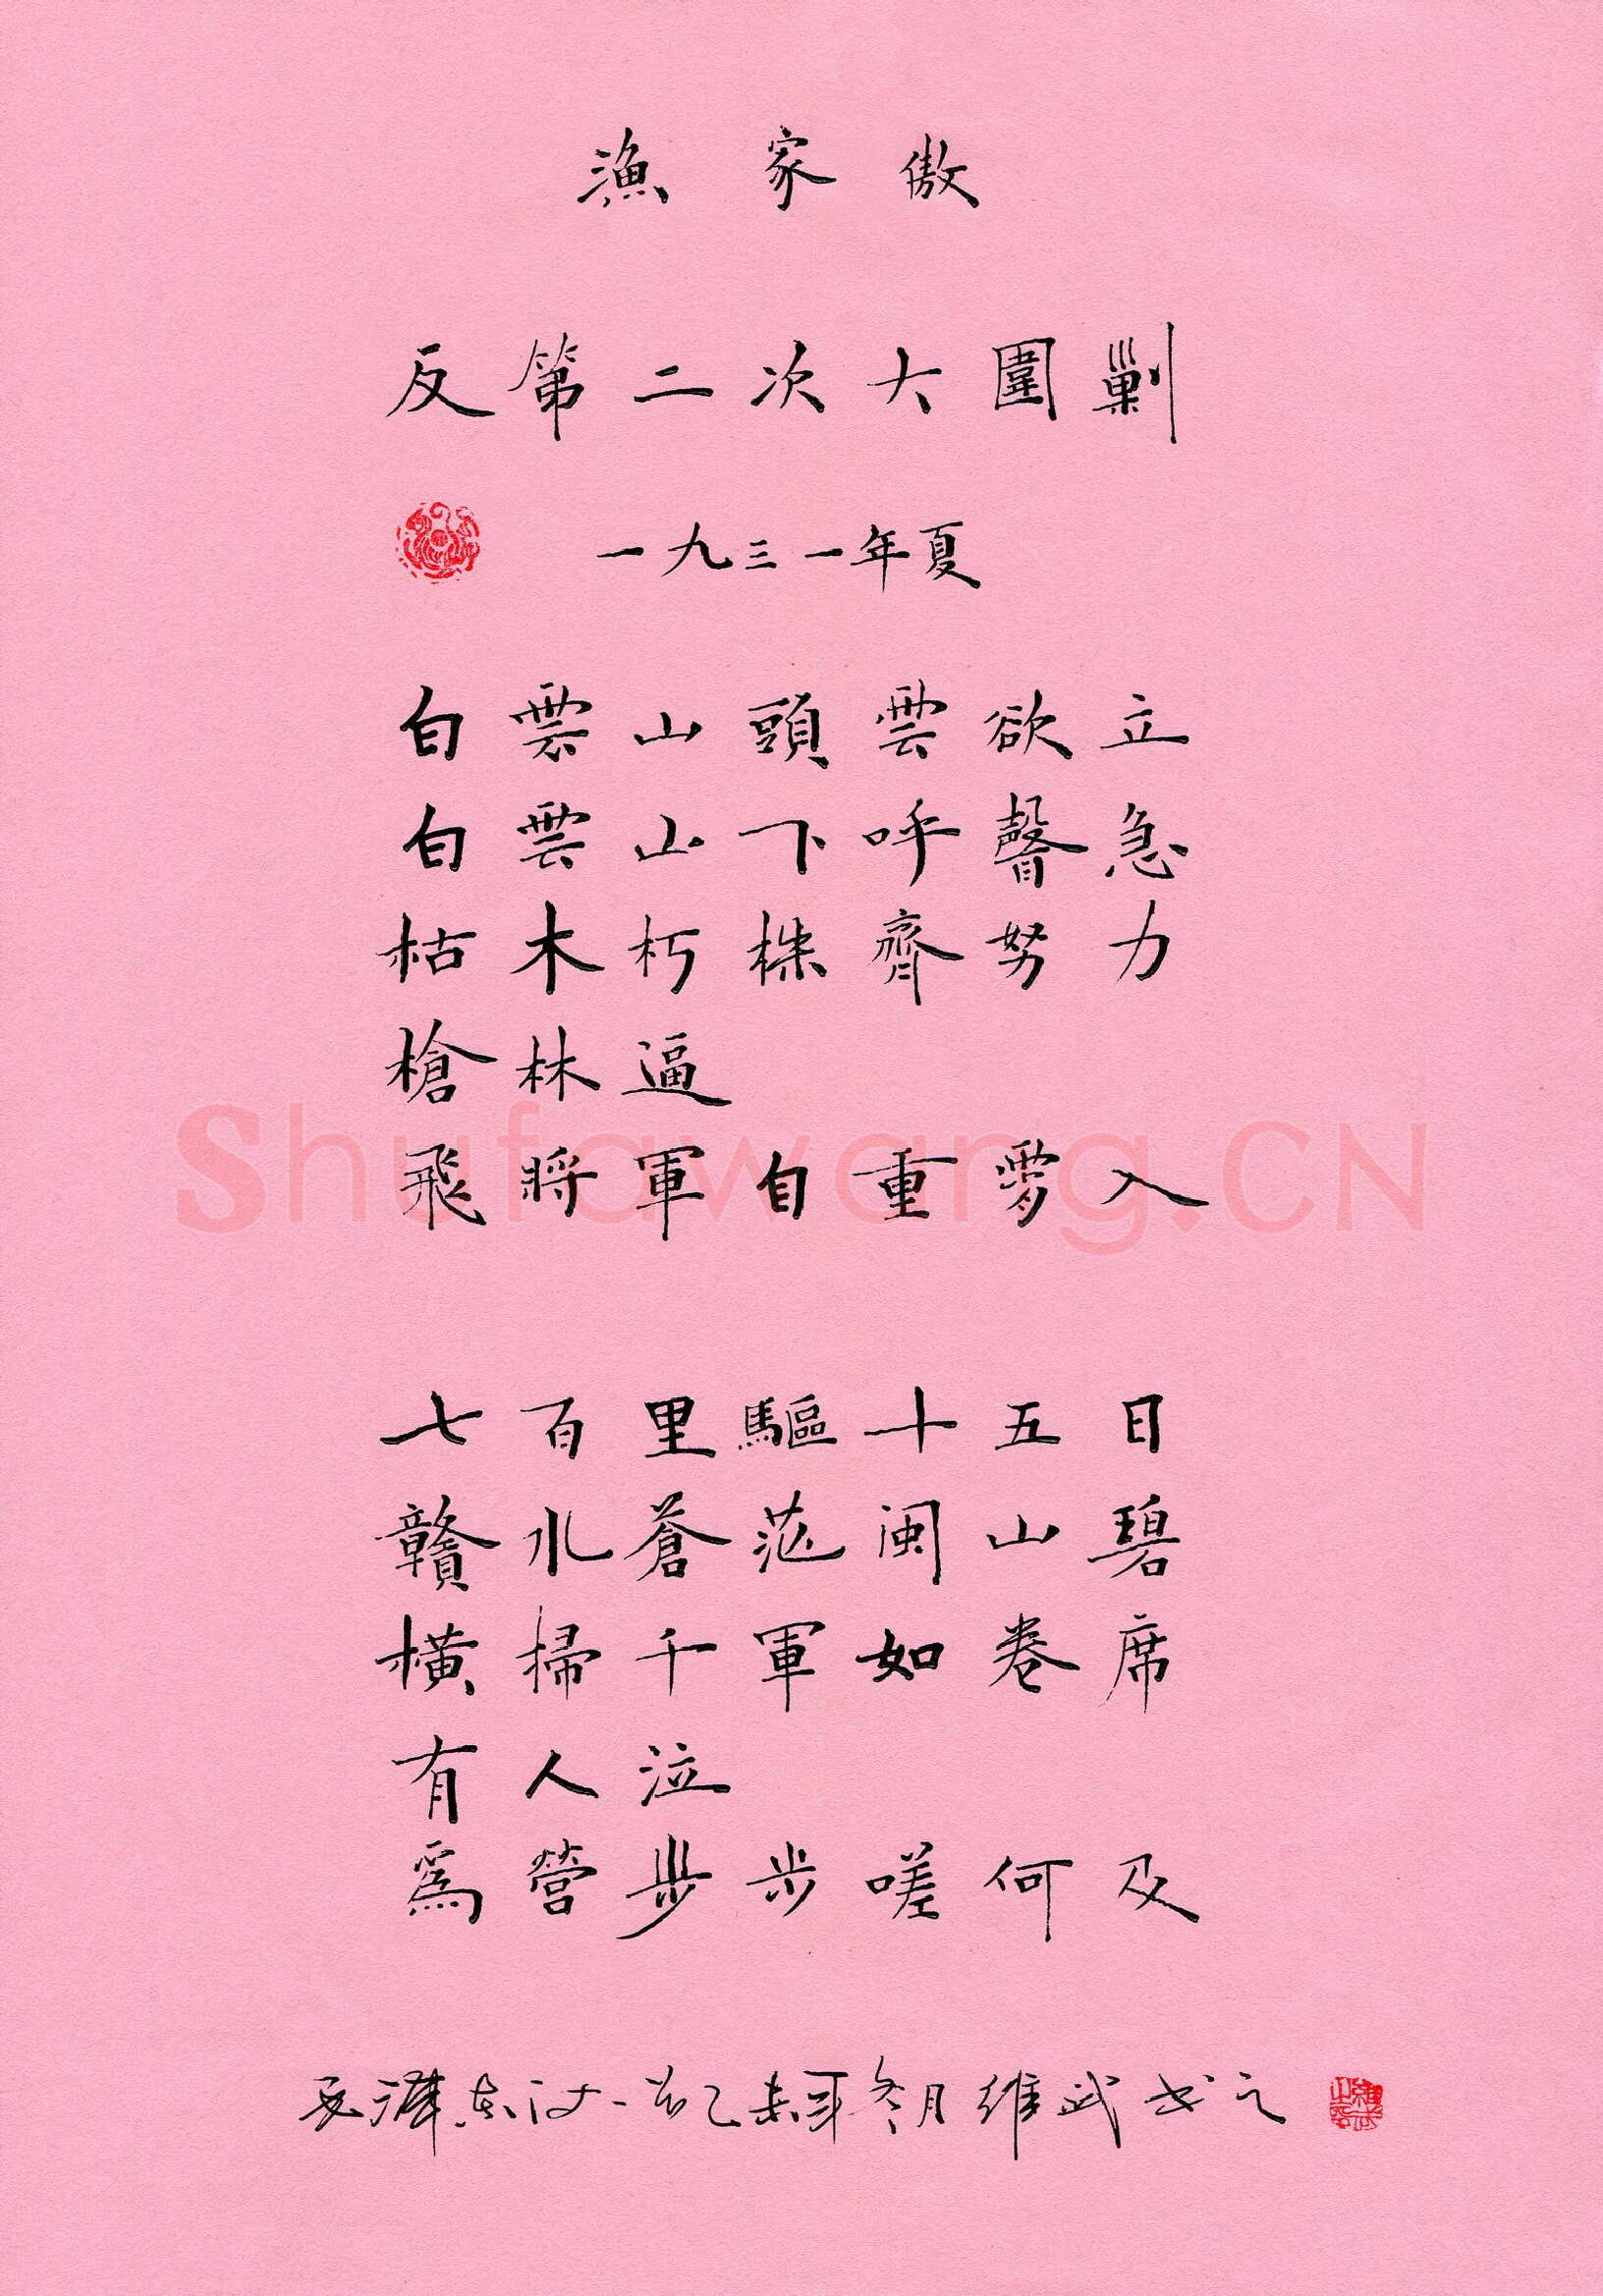 漁家傲
反第二次大圍剿
一九三一年夏
白雲山頭雲欲立
白雲山下呼聲急
枯木朽株齊努力
槍林逼
飛將軍自重霄入
Shufawang.CN
七百里驅十五日
贛水蒼茫閩山碧
橫掃千軍如卷席
有人泣
爲營步步嗟何及
毛澤東詞一首乙未年冬月維武书之